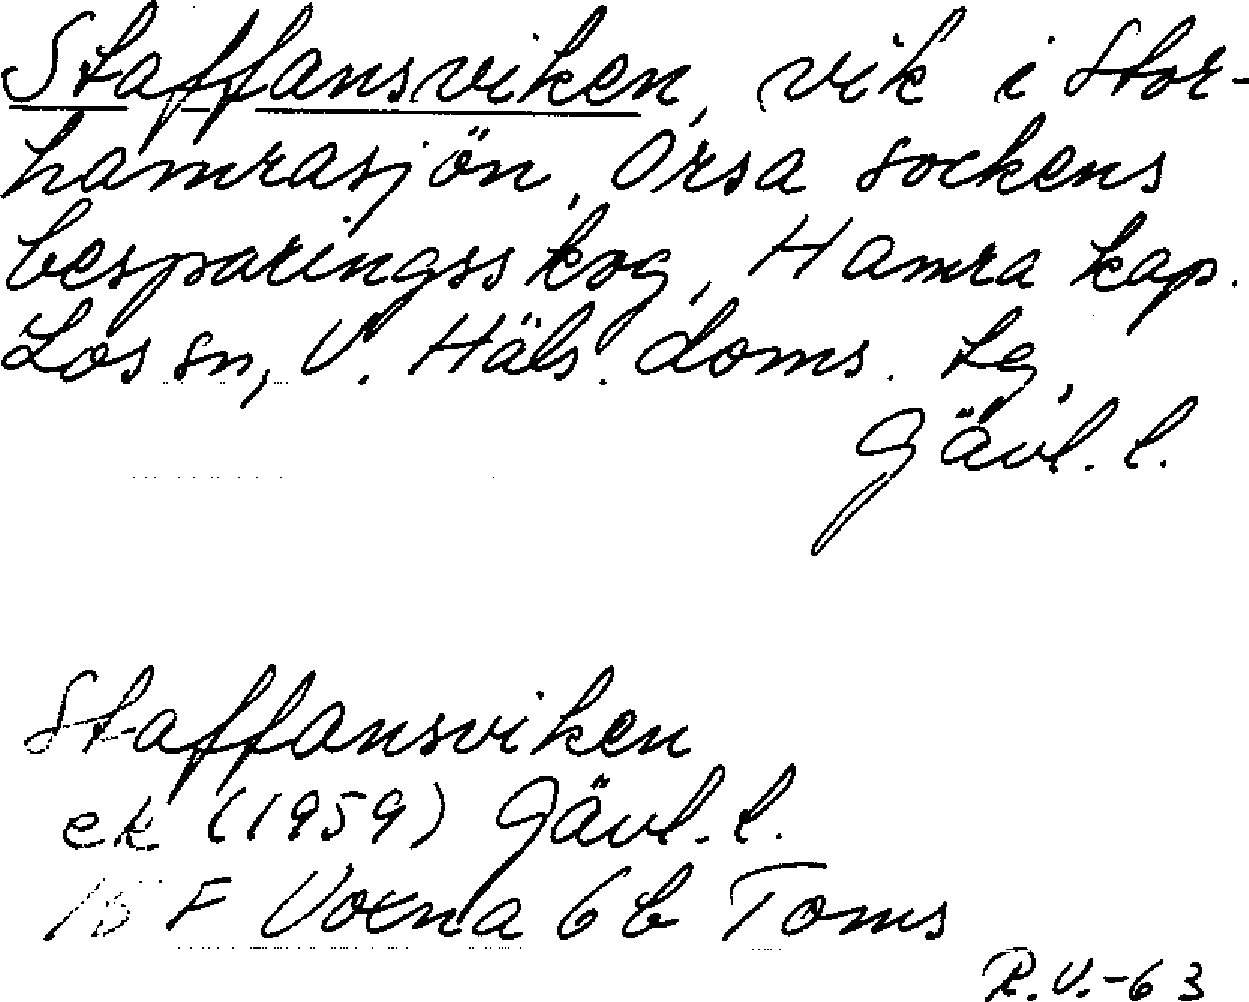 Staffansviken, vik i Stor-
hamrasjön, Orsa sockens
besparingsskog, Hamra kap.
Los sn, V. Häls. doms. tg,
Gävl. l.
Staffansviken
ek (1959) Gävl. l.
15 F Voxna 6b Toms
R.V.-63